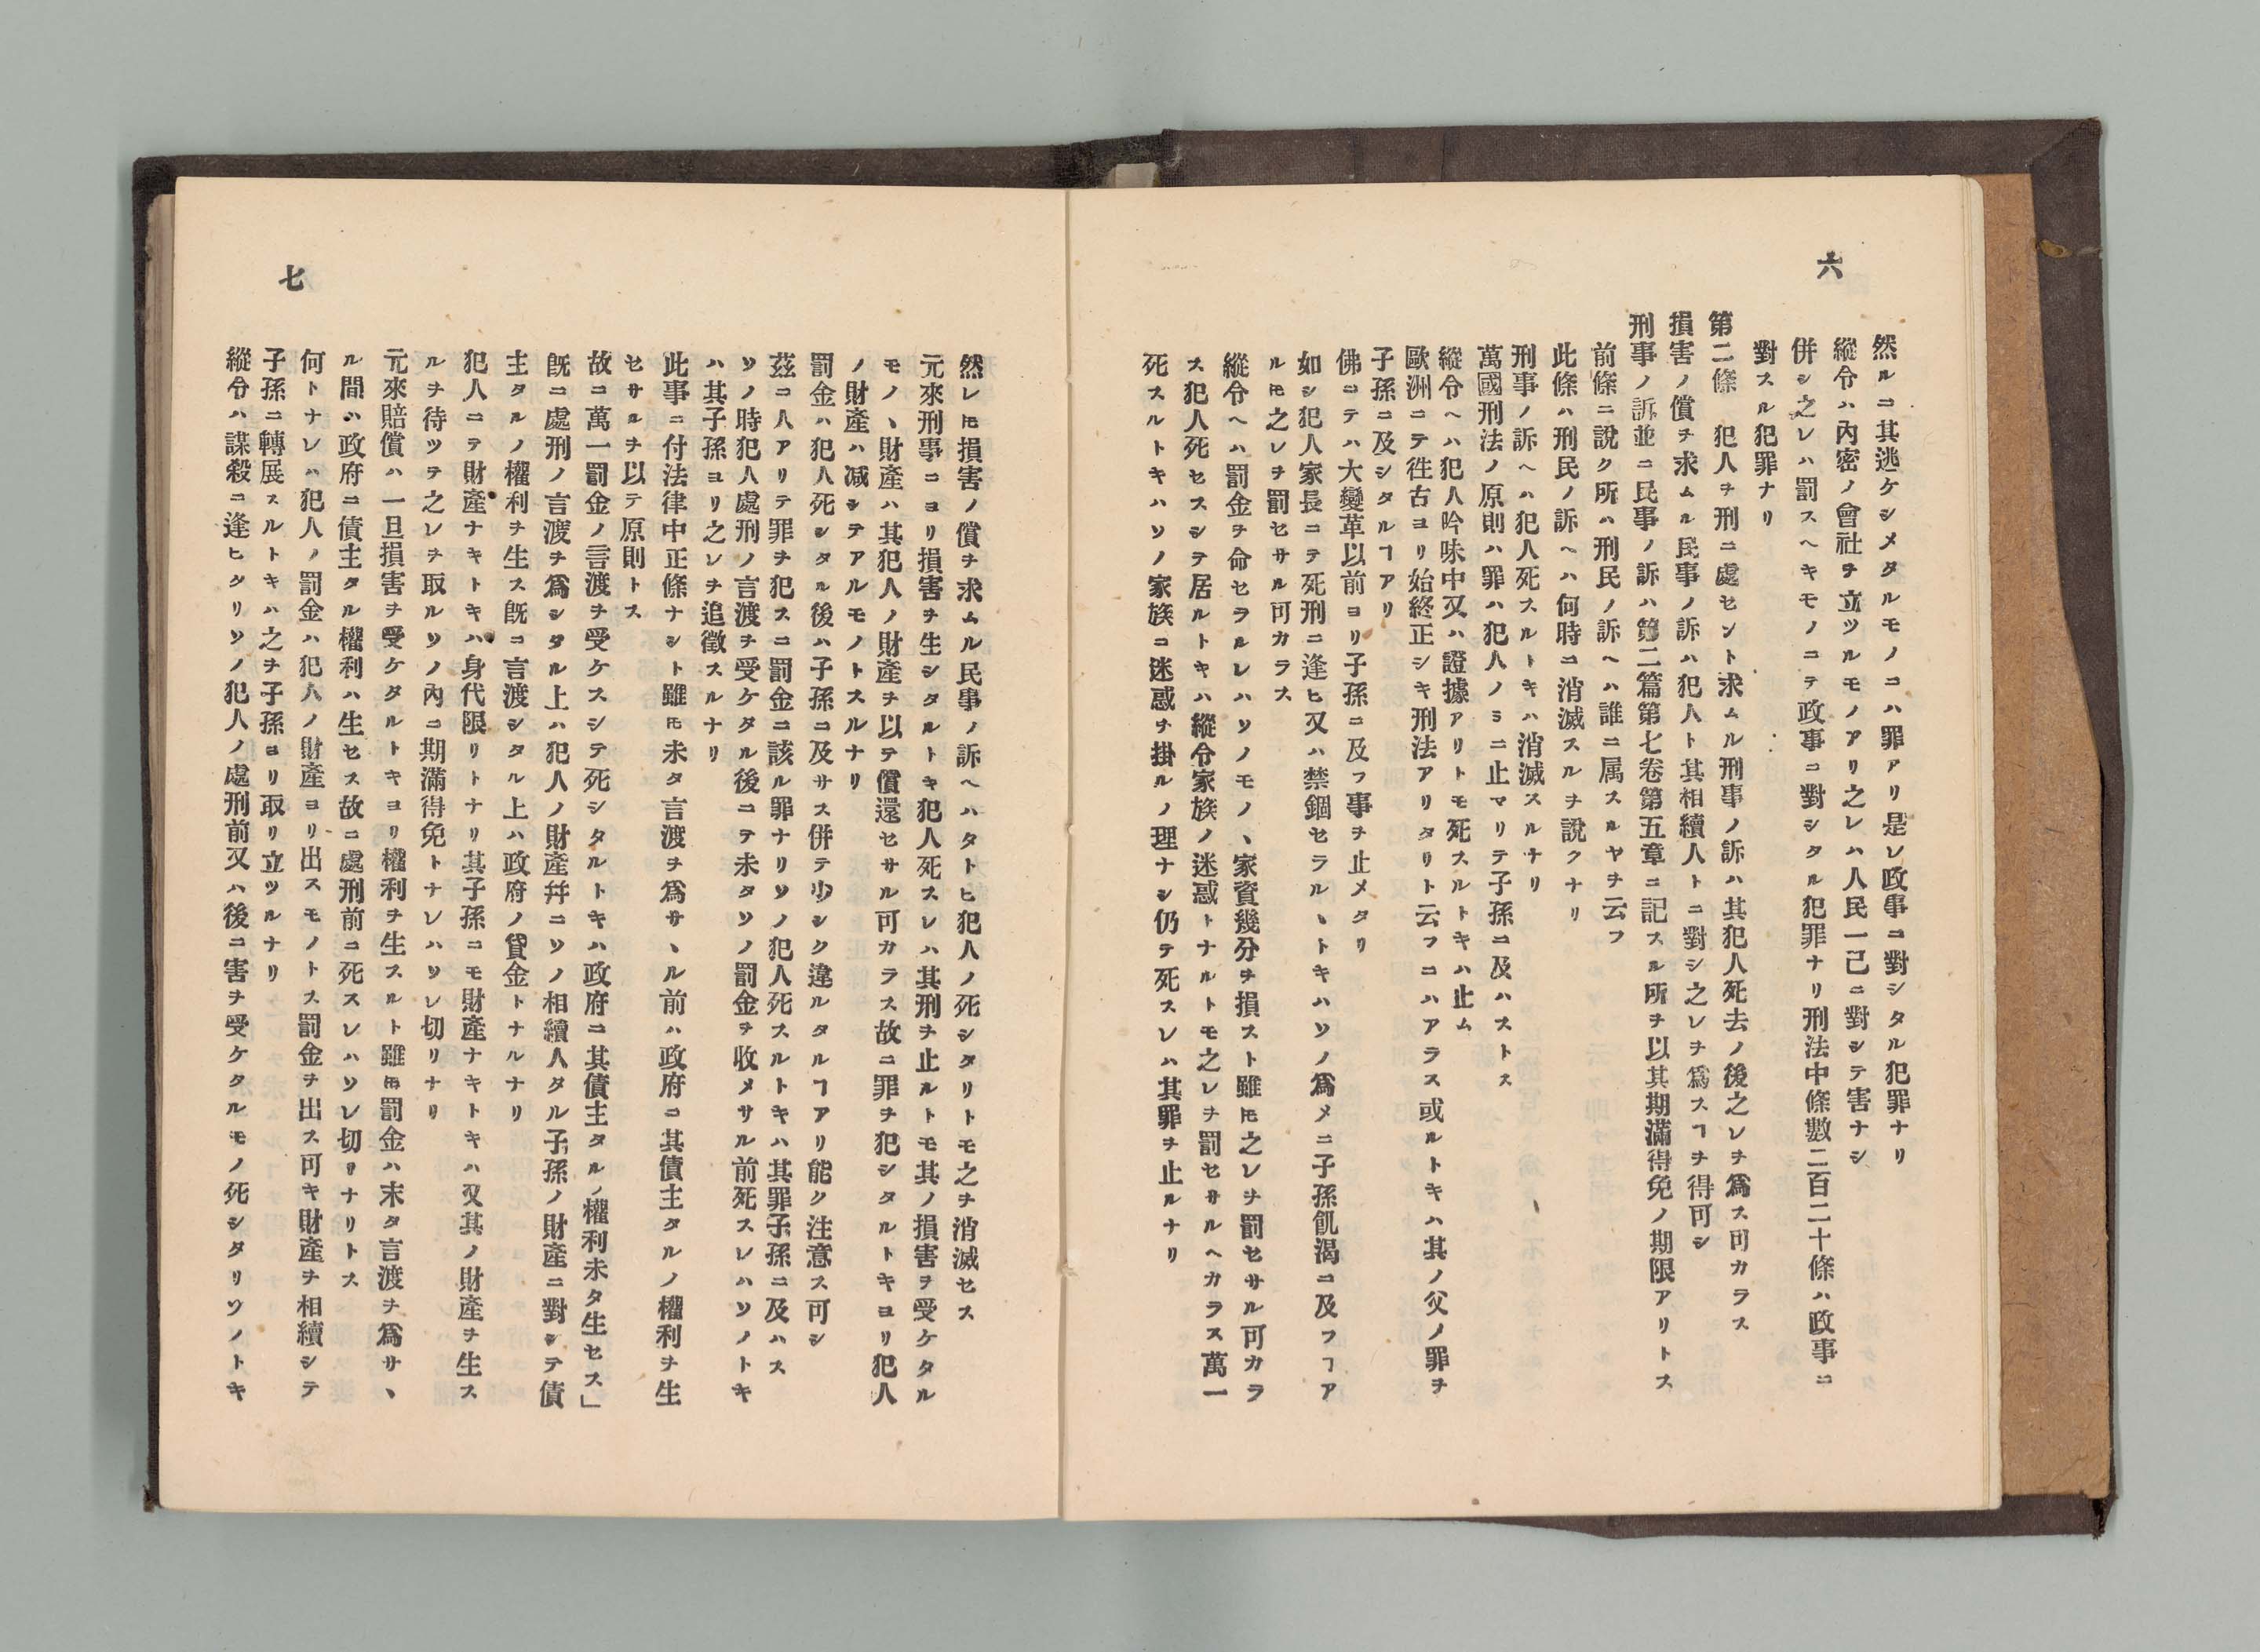 六
然ルニ其逃ケシメタルモノニハ罪アリ是レ政事ニ對シタル犯罪ナリ
縱令ハ內密ノ會社ヲ立ツルモノアリ之レハ人民一己ニ對シテ害ナシ
併シ之レハ罰スヘキモノニテ政事ニ對シタル犯罪ナリ刑法中條數二百二十條ハ政事ニ
對スル犯罪ナリ
第二條　犯人ヲ刑ニ處セント求ムル刑事ノ訴ハ其犯人死去ノ後之レヲ爲ス可カラス
損害ノ償ヲ求ムル民事ノ訴ハ犯人ト其相續人トニ對シ之レヲ爲スヿヲ得可シ
刑事ノ訴並ニ民事ノ訴ハ第二篇第七卷第五章ニ記スル所ヲ以其期滿得免ノ期限アリトス
前條ニ說ク所ハ刑民ノ訴ヘハ誰ニ属スルヤヲ云フ
此條ハ刑民ノ訴ヘハ何時ニ消滅スルヲ說クナリ
刑事ノ訴ヘハ犯人死スルトキハ消滅スルナリ
萬國刑法ノ原則ハ罪ハ犯人ノミニ止マリテ子孫ニ及ハストス
縱令ヘハ犯人吟味中又ハ證據アリトモ死スルトキハ止ム
歐洲ニテ徃古ヨリ始終正シキ刑法アリタリト云フニハアラス或ルトキハ其ノ父ノ罪ヲ
子孫ニ及シタルヿアリ
佛ニテハ大變革以前ヨリ子孫ニ及フ事ヲ止メタリ
如シ犯人家長ニテ死刑ニ逢ヒ又ハ禁錮セラルヽトキハソノ爲メニ子孫飢渴ニ及フヿア
ルモ之レヲ罰セサル可カラス
縱令ヘハ罰金ヲ命セラルレハソノモノヽ家資幾分ヲ損スト雖モ之レヲ罰セサル可カラ
ス犯人死セスシテ居ルトキハ縱令家族ノ迷惑トナルトモ之レヲ罰セサルヘカラス萬一
死スルトキハソノ家族ニ迷惑ヲ掛ルノ理ナシ仍テ死スレハ其罪ヲ止ルナリ
七
然レモ損害ノ償ヲ求ムル民事ノ訴ヘハタトヒ犯人ノ死シタリトモ之ヲ消滅セス
元來刑事ニヨリ損害ヲ生シタルトキ犯人死スレハ其刑ヲ止ルトモ其ノ損害ヲ受ケタル
モノヽ財產ハ其犯人ノ財產ヲ以テ償還セサル可カラス故ニ罪ヲ犯シタルトキヨリ犯人
ノ財產ハ減シテアルモノトスルナリ
罰金ハ犯人死シタル後ハ子孫ニ及サス併テ少シク違ルタルヿアリ能ク注意ス可シ
茲ニ人アリテ罪ヲ犯スニ罰金ニ該ル罪ナリソノ犯人死スルトキハ其罪子孫ニ及ハス
ソノ時犯人處刑ノ言渡ヲ受ケタル後ニテ未タソノ罰金ヲ收メサル前死スレハソノトキ
ハ其子孫ヨリ之レヲ追徵スルナリ
此事ニ付法律中正條ナシト雖モ未タ言渡ヲ爲サヽル前ハ政府ニ其債主タルノ權利ヲ生
セサルヲ以テ原則トス
故ニ萬一罰金ノ言渡ヲ受ケスシテ死シタルトキハ政府ニ其債主タルノ權利未タ生セス」
既ニ處刑ノ言渡ヲ爲シタル上ハ犯人ノ財產幷ニソノ相續人タル子孫ノ財產ニ對シテ債
主タルノ權利ヲ生ス既ニ言渡シタル上ハ政府ノ貸金トナルナリ
犯人ニテ財產ナキトキハ身代限リトナリ其子孫ニモ財產ナキトキハ又其ノ財產ヲ生ス
ルヲ待ツテ之レヲ取ルソノ內ニ期滿得免トナレハソレ切リナリ
元來賠償ハ一旦損害ヲ受ケタルトキヨリ權利ヲ生スルト雖モ罰金ハ末タ言渡ヲ爲サヽ
ル間ハ政府ニ債主タル權利ハ生セス故ニ處刑前ニ死スレハソレ切リナリトス
何トナレハ犯人ノ罰金ハ犯人ノ財產ヨリ出スモノトス罰金ヲ出ス可キ財產ヲ相續シテ
子孫ニ轉展スルトキハ之ヲ子孫ヨリ取リ立ツルナリ
縱令ハ謀殺ニ逢ヒタリソノ犯人ノ處刑前又ハ後ニ害ヲ受ケタルモノ死シタリソノトキ